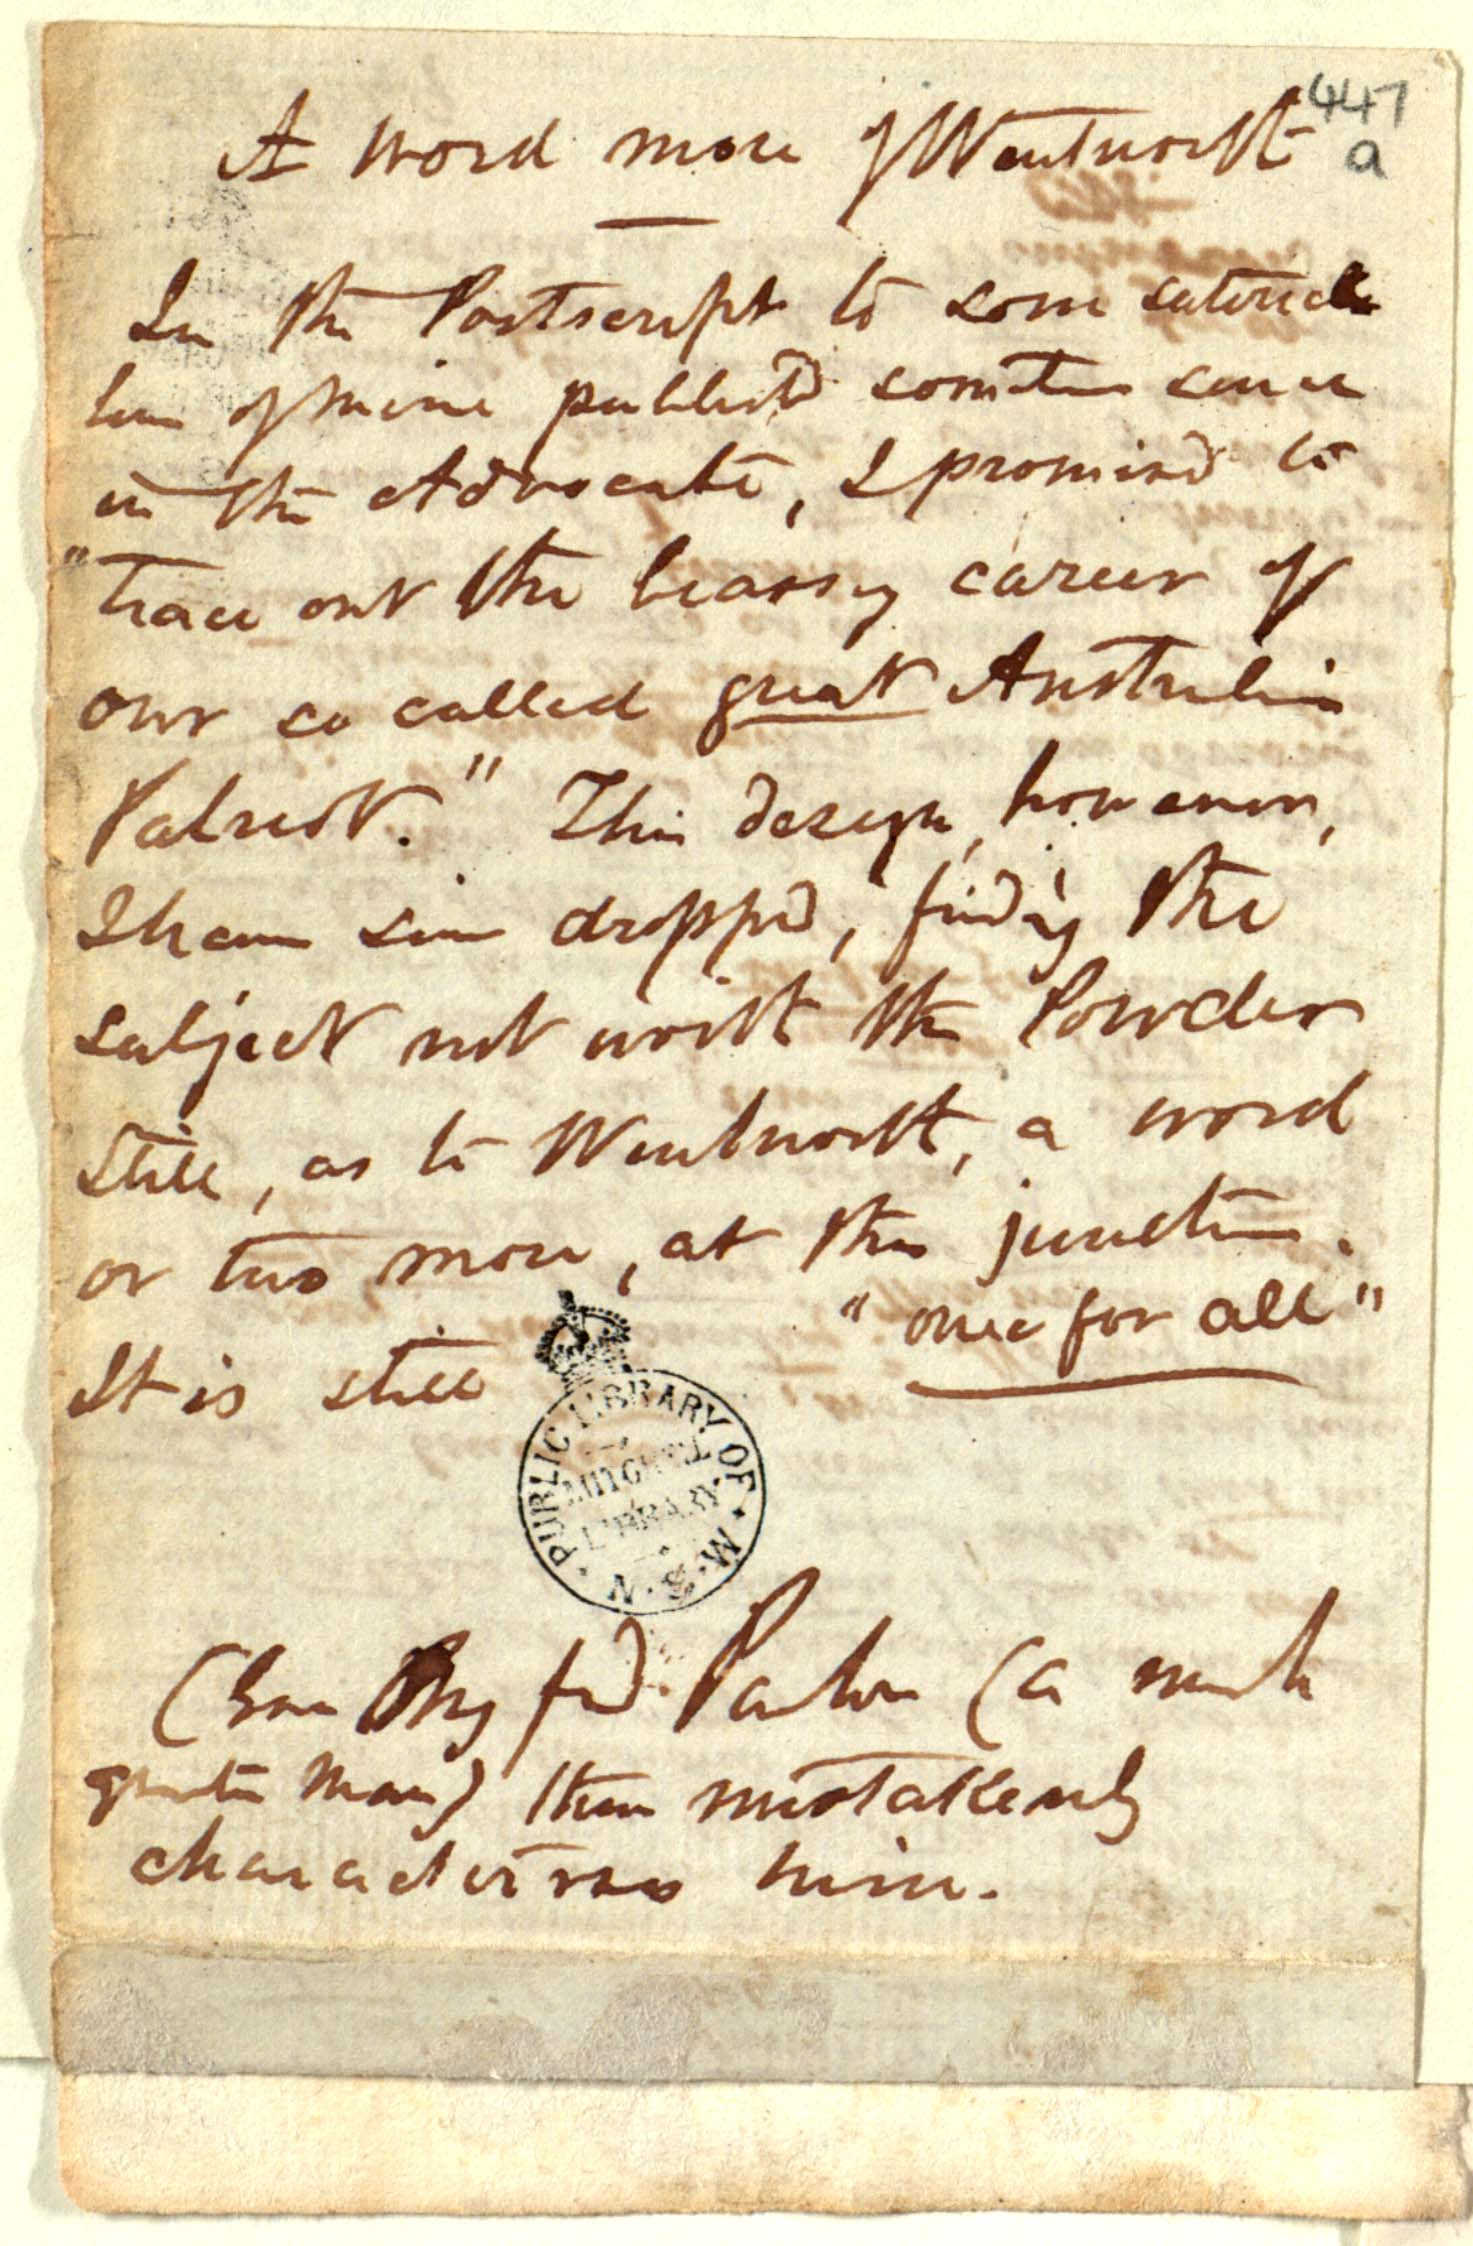 447
a
A word more of Wentworth
In the Postscript to some satirical
lines of mine publishd sometime since
in the Advocate, I promisd to
"trace out the brassy career of
our so called great Australian
Patriot." This design, however,
I have since droppd, finding the
subject not worth the Powder
still, as to Wentworth, a word
or two more, at this juncture.
"once for all"
It is still
PUBLIC LIBRARY OF N.S.W.
MITCHELL
LIBRARY
my frd. Parkes (a much
greater man) then mistakenly
him.